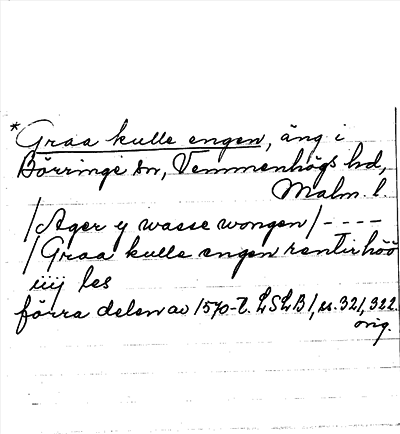 *Graa kulle engen, äng i
Börringe sn, Vemmenhögs hd,
Malm. l.
/Ager y wasse wongen/----
/Graa kulle engen rentir höö
iiij les
förra delen av 1570-t. LSLB1, s. 321, 322.
orig.